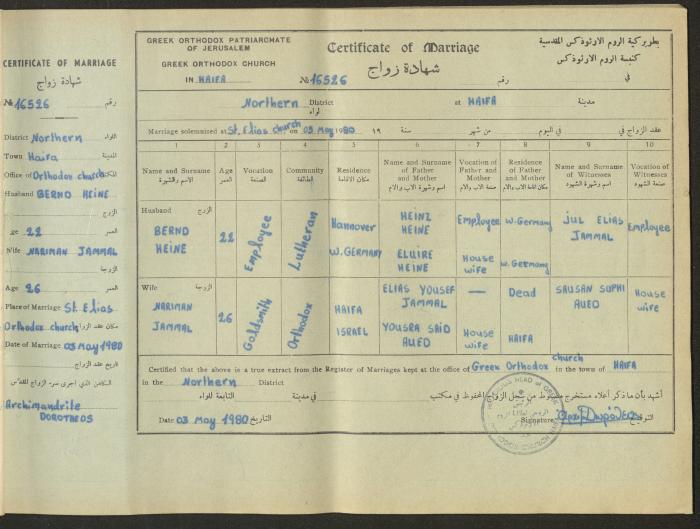 CERTIFICATE OF MARRIAGE
شهادة زواج
№ 16526 رقم
District Northern اللواء
Town Haifa المدينة
Office of Orthodox church
Husband BERND HEINE
الزوج
age 22 العمر
Wife NARIMAN JAMMAL
الزوجة
Age 26 العمر
Place of Marriage St. Elias
Orthodox church مكان عقد الزواج
Date of Marriage 03 May 1980
تاريخ عقد الزواج
Archimandrite
DOROTHEOS
GREEK ORTHODOX PATRIARCHATE
OF JERUSALEM
GREEK ORTHODOX CHURCH
IN HAIFA
Certificate of Marriage
شهادة زواج
№ 16526 رقم
بطريركية الروم الاورثوذكس المقدسية
كنيسة الروم الاورثوذكس
في
Northern District لواء at HAIFA مدينة
Marriage solemnised at St. Elias church on 03 May 1980 19 سنة من شهر في اليوم عقد الزواج في
1 2 3 4 5 6 7 8 9 10
Name and Surname الاسم والشهرة
Age العمر
Vocation الصنعة
Community الطائفة
Residence مكان الاقامة
Name and Surname of Father and Mother اسم وشهرة الاب والام
Vocation of Father and Mother صنعة الاب والام
Residence of Father and Mother مكان اقامة الاب والام
Name and Surname of Witnesses اسم وشهرة الشهود
Vocation of Witnesses صنعة الشهود
Husband الزوج
BERND HEINE
22
Employee
Lutheran
Hannover W. GERMANY
HEINZ HEINE
Employee
W. Germany
JUL ELIAS JAMMAL
Employee
HEINE
House wife
W. Germany
Wife الزوجة
NARIMAN JAMMAL
26
Goldsmith
Orthodox
HAIFA ISRAEL
ELIAS YOUSEF JAMMAL
—
Dead
SAUSAN SUPHI AUED
House wife
YOUSRA SAID AUED
House wife
HAIFA
Certified that the above is a true extract from the Register of Marriages kept at the office of Greek Orthodox church in the town of HAIFA
in the Northern District التابعة للواء في مدينة
أشهد بأن ما ذكر أعلاه مستخرج مضبوط من سجل الزواج المحفوظ في مكتب
Date 03 May 1980 التاريخ
Signature التوقيع